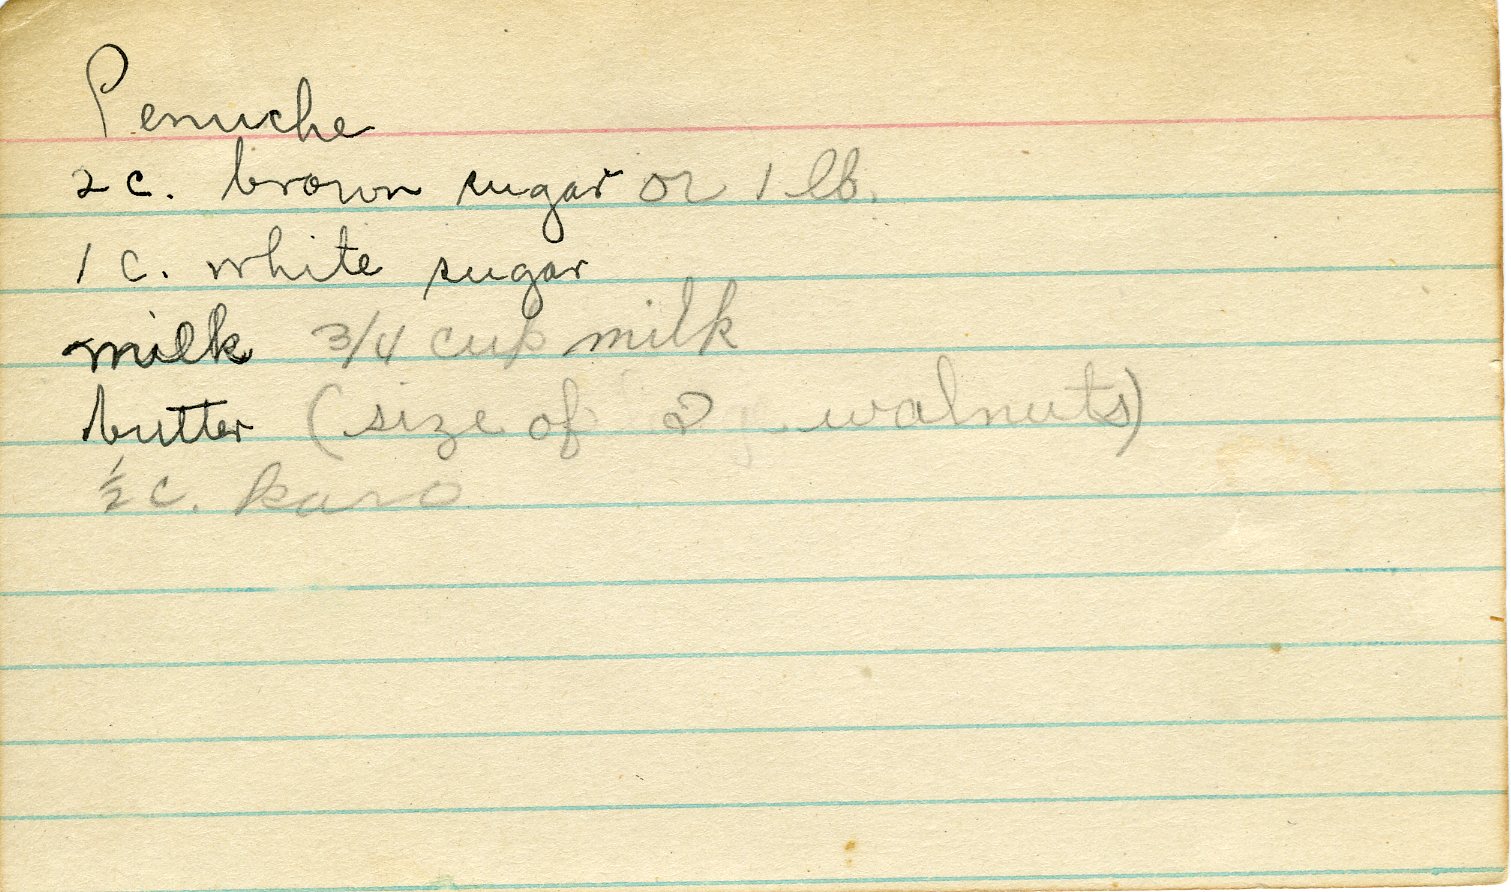 Penuche
2 c. brown sugar or 1 lb.
1 c. white sugar
milk 3/4 cup milk
butter (size of 2 walnuts)
1/2 c. Karo